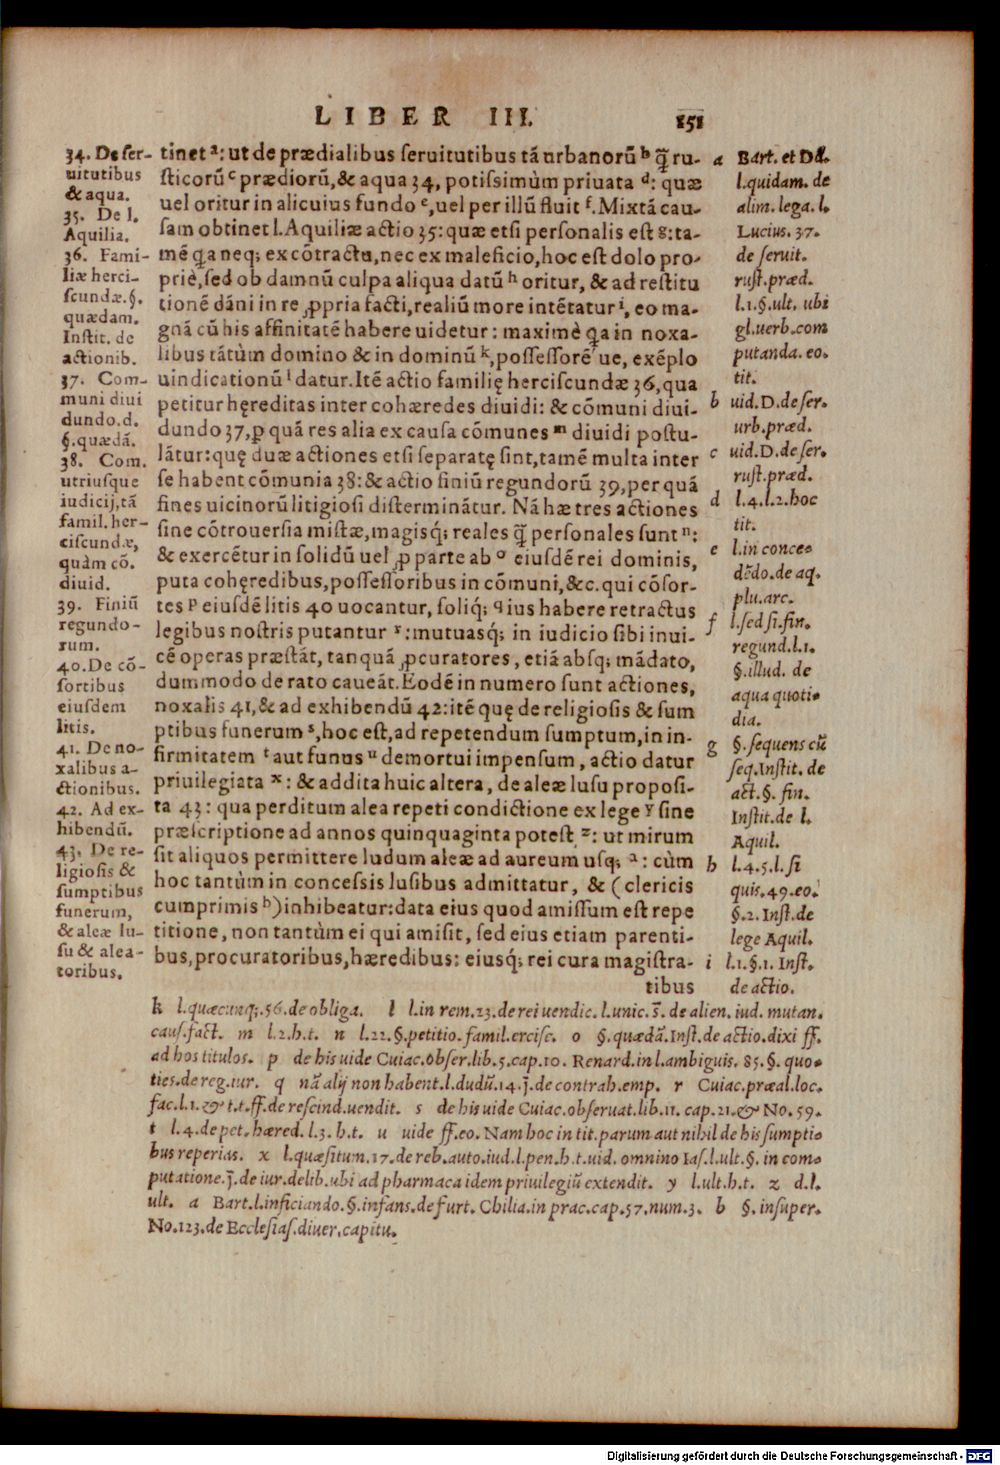 LIBER III. 151
34. De ser-
uitutibus
& aqua.
35. De l.
Aquilia.
36. Fami-
liæ herci-
scundæ. §.
quædam.
Instit. de
actionib.
37. Com-
muni diui
dundo. d.
§. quædã.
38. Com.
utriusque
iudicij, tã
famil. her-
ciscundæ,
quàm cõ.
diuid.
39. Finiũ
regundo-
rum.
40. De cõ-
sortibus
eiusdem
litis.
41. De no-
xalibus a-
ctionibus.
42. Ad ex-
hibendũ.
43. De re-
ligiosis &
sumptibus
funerum,
& aleæ lu-
su & alea-
toribus.
tinet ᵃ: ut de prædialibus seruitutibus tã urbanorũ ᵇ q̃ ru-
sticorũ ᶜ prædiorũ, & aqua 34, potissimùm priuata ᵈ: quæ
uel oritur in alicuius fundo ᵉ, uel per illũ fluit ᶠ. Mixtã cau-
sam obtinet l. Aquiliæ actio 35: quæ etsi personalis est ᵍ: ta-
mẽ qa neq; ex cõtractu, nec ex maleficio, hoc est dolo pro-
priè, sed ob damnũ culpa aliqua datũ ʰ oritur, & ad restitu
tionẽ dãni in re ꝓpria facti, realiũ more intẽtatur ⁱ, eo ma-
gnã cũ his affinitatẽ habere uidetur: maximè qa in noxa-
libus tãtùm domino & in dominũ ᵏ, possessorẽ ue, exẽplo
uindicationũ ˡ datur. Itẽ actio familię herciscundæ 36, qua
petitur hęreditas inter cohæredes diuidi: & cõmuni diui-
dundo 37, ꝑ quã res alia ex causa cõmunes ᵐ diuidi postu-
lãtur: quę duæ actiones etsi separatę sint, tamẽ multa inter
se habent cõmunia 38: & actio finiũ regundorũ 39, per quã
fines uicinorũ litigiosi disterminãtur. Nã hæ tres actiones
sine cõtrouersia mistæ, magisq́; reales q̃ personales sunt ⁿ:
& exercẽtur in solidũ uel ꝓ parte ab ᵒ eiusdẽ rei dominis,
puta cohęredibus, possessoribus in cõmuni, &c. qui cõsor-
tes ᵖ eiusdẽ litis 40 uocantur, soliq́; ᑫ ius habere retractus
legibus nostris putantur ʳ: mutuasq́; in iudicio sibi inui-
cẽ operas præstãt, tanquã ꝓcuratores, etiã absq; mãdato,
dummodo de rato caueãt. Eodẽ in numero sunt actiones,
noxalis 41, & ad exhibendũ 42: itẽ quę de religiosis & sum
ptibus funerum ˢ, hoc est, ad repetendum sumptum, in in-
firmitatem ᵗ aut funus ᵘ demortui impensum, actio datur
priuilegiata ˣ: & addita huic altera, de aleæ lusu proposi-
ta 43: qua perditum alea repeti condictione ex lege ʸ sine
præscriptione ad annos quinquaginta potest ᶻ: ut mirum
sit aliquos permittere ludum aleæ ad aureum usq; ᵃ: cùm
hoc tantùm in concessis lusibus admittatur, & (clericis
cumprimis ᵇ) inhibeatur: data eius quod amissum est repe
titione, non tantùm ei qui amisit, sed eius etiam parenti-
bus, procuratoribus, hæredibus: eiusq́; rei cura magistra-
tibus
a Bart. et DD.
l. quidam. de
alim. lega. l.
Lucius. 37.
de seruit.
rust. præd.
l. 1. §. ult. ubi
gl. uerb. com
putanda. eo.
tit.
b uid. D. de ser.
urb. præd.
c uid. D. de ser.
rust. præd.
d l. 4. l. 2. hoc
tit.
e l. in conce-
dẽdo. de aq.
plu. arc.
f l. sed si. fin.
regund. l. 1.
§. illud. de
aqua quoti-
dia.
g §. sequens cũ
seq. Instit. de
act. §. fin.
Instit. de l.
Aquil.
h l. 4. 5. l. si
quis. 49. eo.
§. 2. Inst. de
lege Aquil.
i l. 1. §. 1. Inst.
de actio.
k l. quæcunq;. 56. de obliga. l l. in rem. 23. de rei uendic. l. unic. s̃. de alien. iud. mutan.
caus. fact. m l. 2. h. t. n l. 22. §. petitio. famil. ercisc. o §. quædã. Inst. de actio. dixi ff.
ad hos titulos. p de his uide Cuiac. obser. lib. 5. cap. 10. Renard. in l. ambiguis. 85. §. quo-
ties. de reg. iur. q nã alij non habent. l. dudũ. 14. j̃. de contrah. emp. r Cuiac. præal. loc.
fac. l. 1. & t. t. ff. de rescind. uendit. s de his uide Cuiac. obseruat. lib. 11. cap. 21. & No. 59.
t l. 4. de pet. hæred. l. 3. h. t. u uide ff. eo. Nam hoc in tit. parum aut nihil de his sumpti-
bus reperias. x l. quæsitum. 17. de reb. auto. iud. l. pen. h. t. uid. omnino Ias. l. ult. §. in com-
putatione. j̃. de iur. delib. ubi ad pharmaca idem priuilegiũ extendit. y l. ult. h. t. z d. l.
ult. a Bart. l. inficiando. §. infans. de furt. Chilia. in prac. cap. 57. num. 3. b §. insuper.
No. 123. de Ecclesias. diuer. capitu.
Digitalisierung gefördert durch die Deutsche Forschungsgemeinschaft - DFG